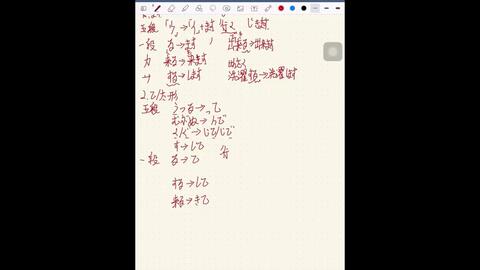 五段 「う」→「い」+ます 行く
一段 る→ます 出来る→出来ます
カ 来る→来ます
サ する→します 洗濯する→洗濯します
2.て/た形
五段 うつる→って
むぶぬ→んで
く/ぐ→して/じで
す→して 行
一段 る→て
する→して
来る→きて